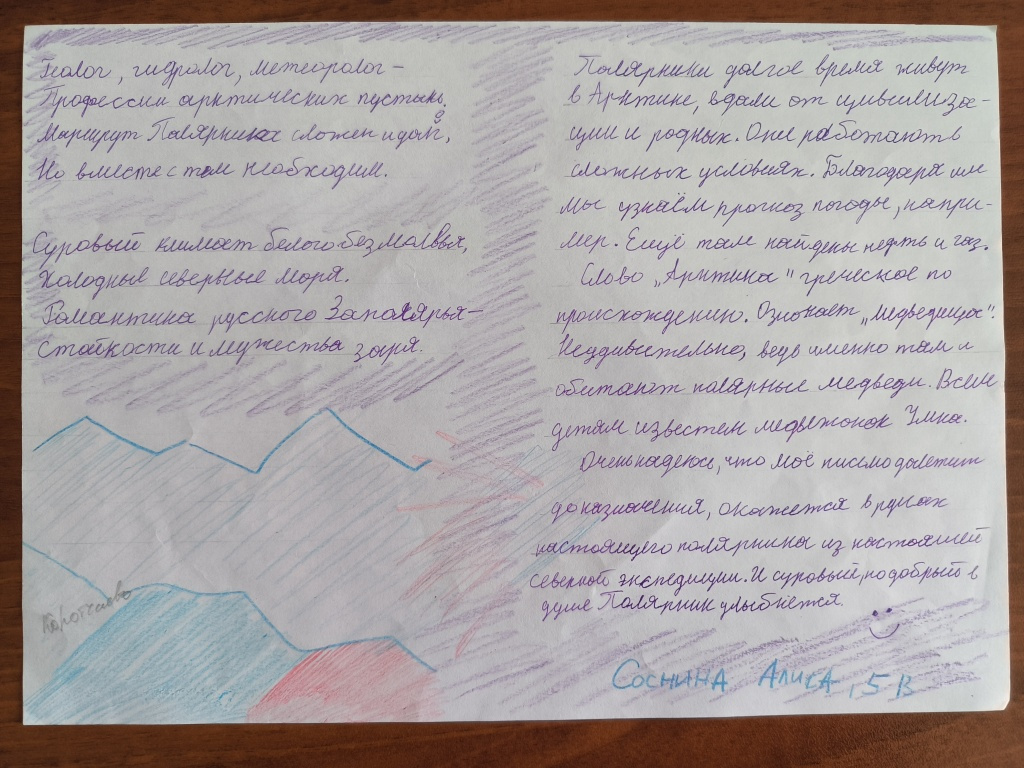 Геолог, гидролог, метеоролог –
Профессии арктических пустынь.
Маршрут Полярника сложен и долг,
Но вместе с тем необходим.
Суровый климат белого безмолвья,
Холодные северные моря.
Романтика русского Заполярья –
Стойкости и мужества заря.
Полярники долгое время живут
в Арктике, вдали от цивилиза-
ции и родных. Они работают в
сложных условиях. Благодаря им
мы узнаём прогноз погоды, напри-
мер. Ещё там найдены нефть и газ.
Слово „Арктика" греческое по
происхождению. Означает „медведица".
Неудивительно, ведь именно там и
обитают полярные медведи. Всем
детям известен медвежонок Умка.
Очень надеюсь, что моё письмо долетит
до назначения, окажется в руках
настоящего полярника из настоящей
северной экспедиции. И суровый, но добрый в
душе Полярник улыбнётся.
Соснина Алиса, 5 В